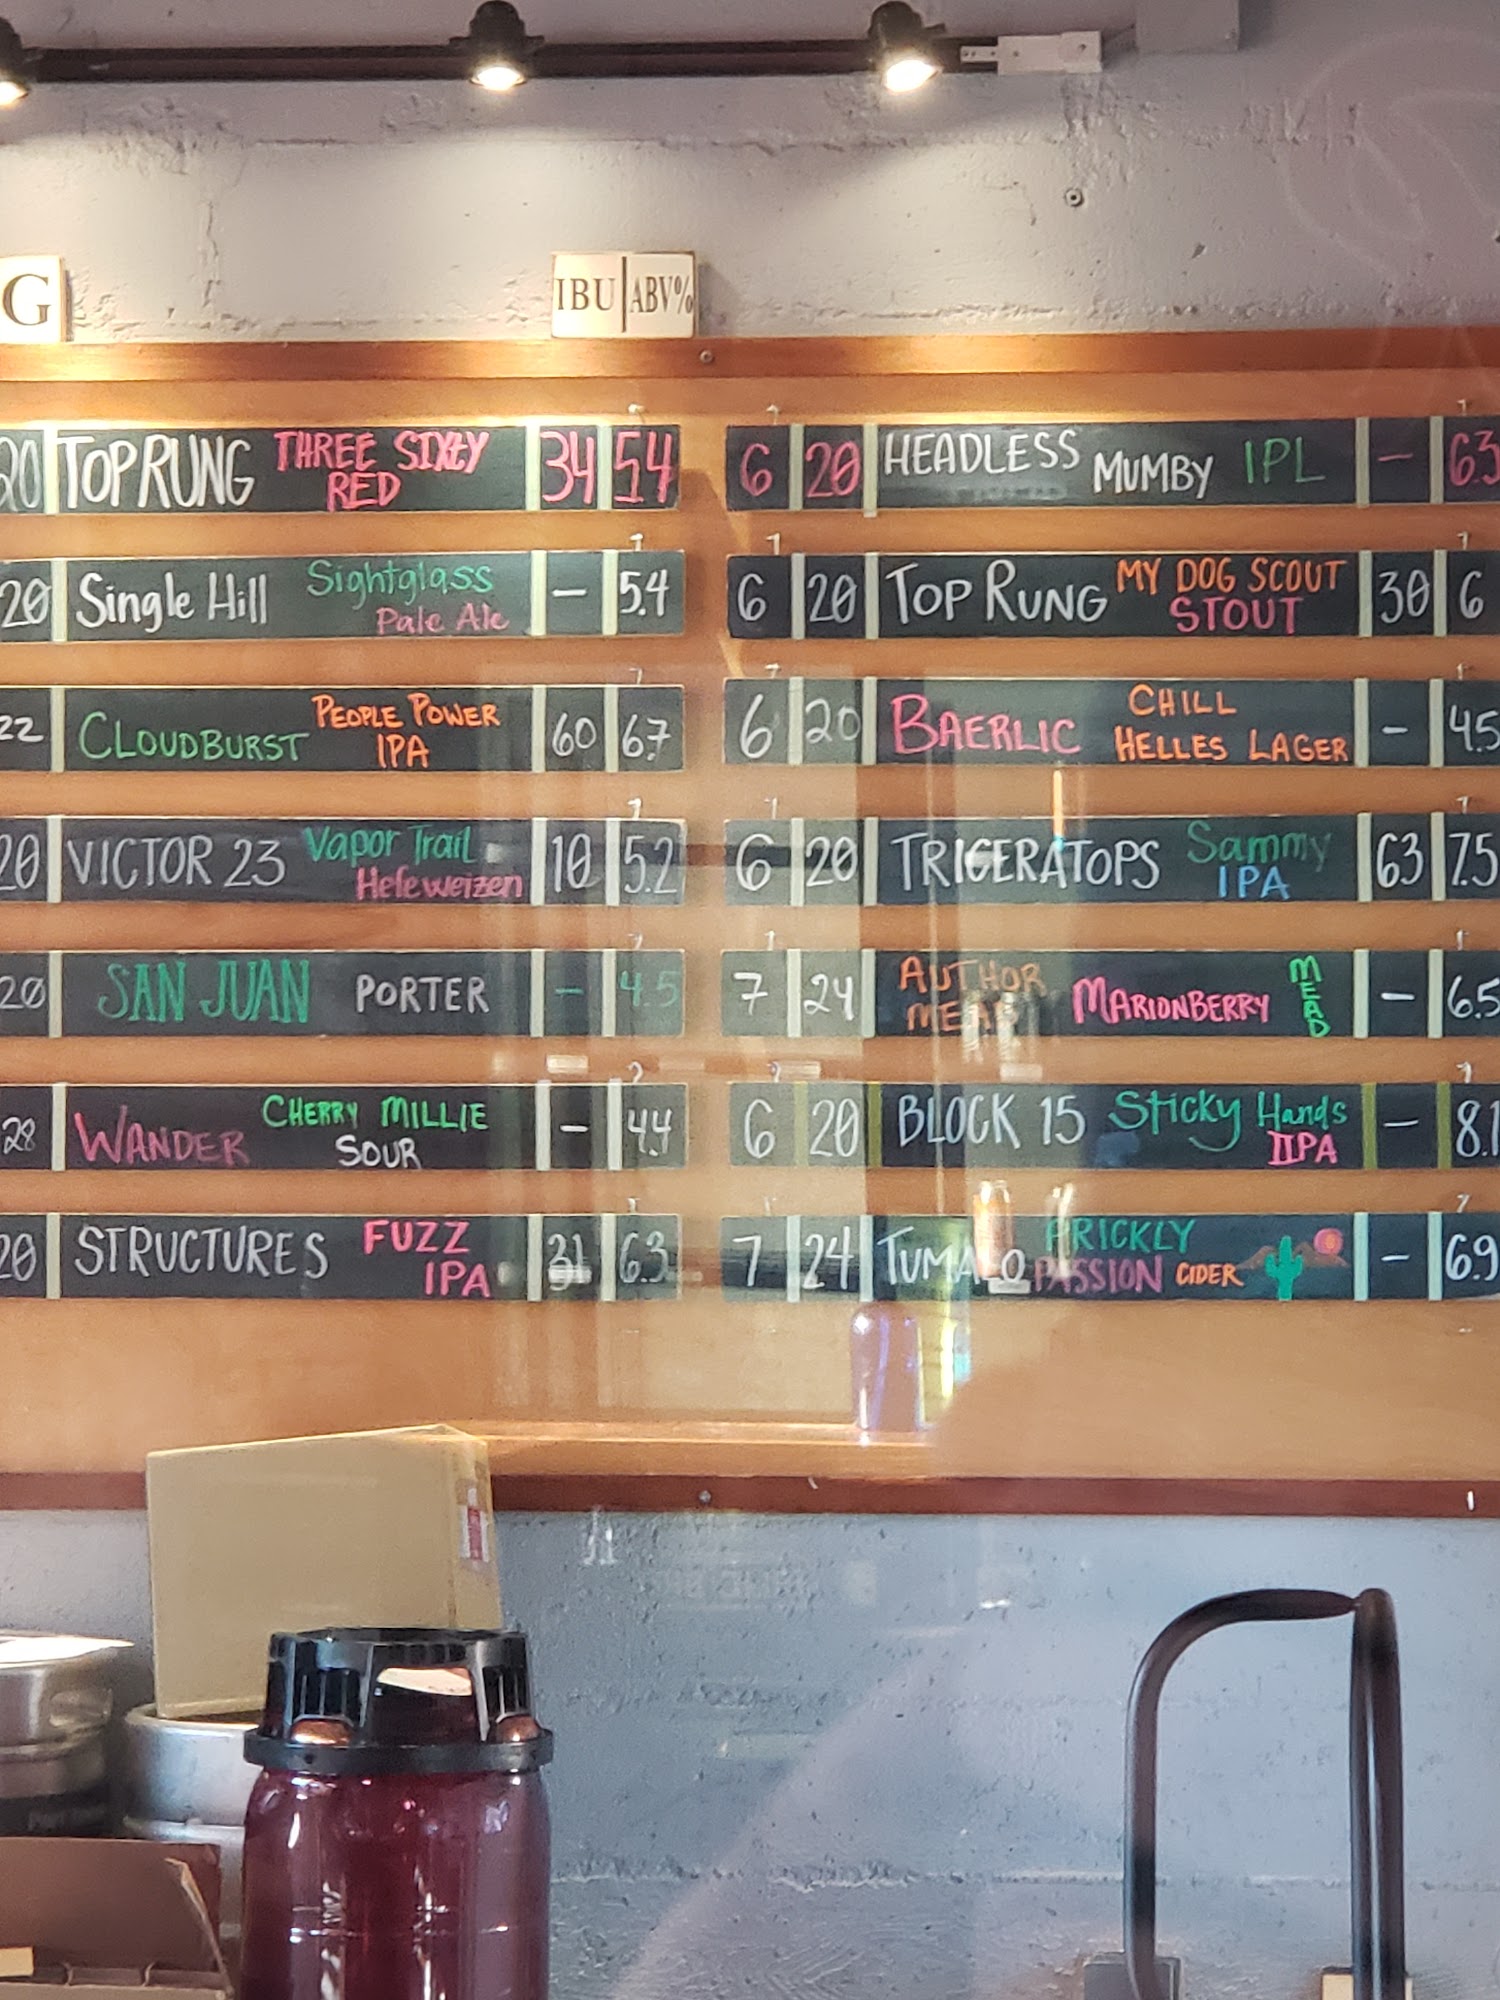 G
IBU ABV%
20 TOP RUNG THREE SIXTY RED 34 5.4
20 Single Hill Sightglass Pale Ale - 5.4
22 CLOUDBURST PEOPLE POWER IPA 60 6.7
20 VICTOR 23 Vapor Trail Hefeweizen 10 5.2
20 SAN JUAN PORTER - 4.5
28 WANDER CHERRY MILLIE SOUR - 4.4
20 STRUCTURES FUZZ IPA 31 6.3
6 20 HEADLESS MUMBY IPL - 6.3
6 20 TOP RUNG MY DOG SCOUT STOUT 30 6
6 20 BAERLIC CHILL HELLES LAGER - 4.5
6 20 TRICERATOPS Sammy IPA 63 7.5
7 24 AUTHOR MEAD MARIONBERRY MEAD - 6.5
6 20 BLOCK 15 Sticky Hands IIPA - 8.1
7 24 TUMALO PRICKLY PASSION CIDER - 6.9